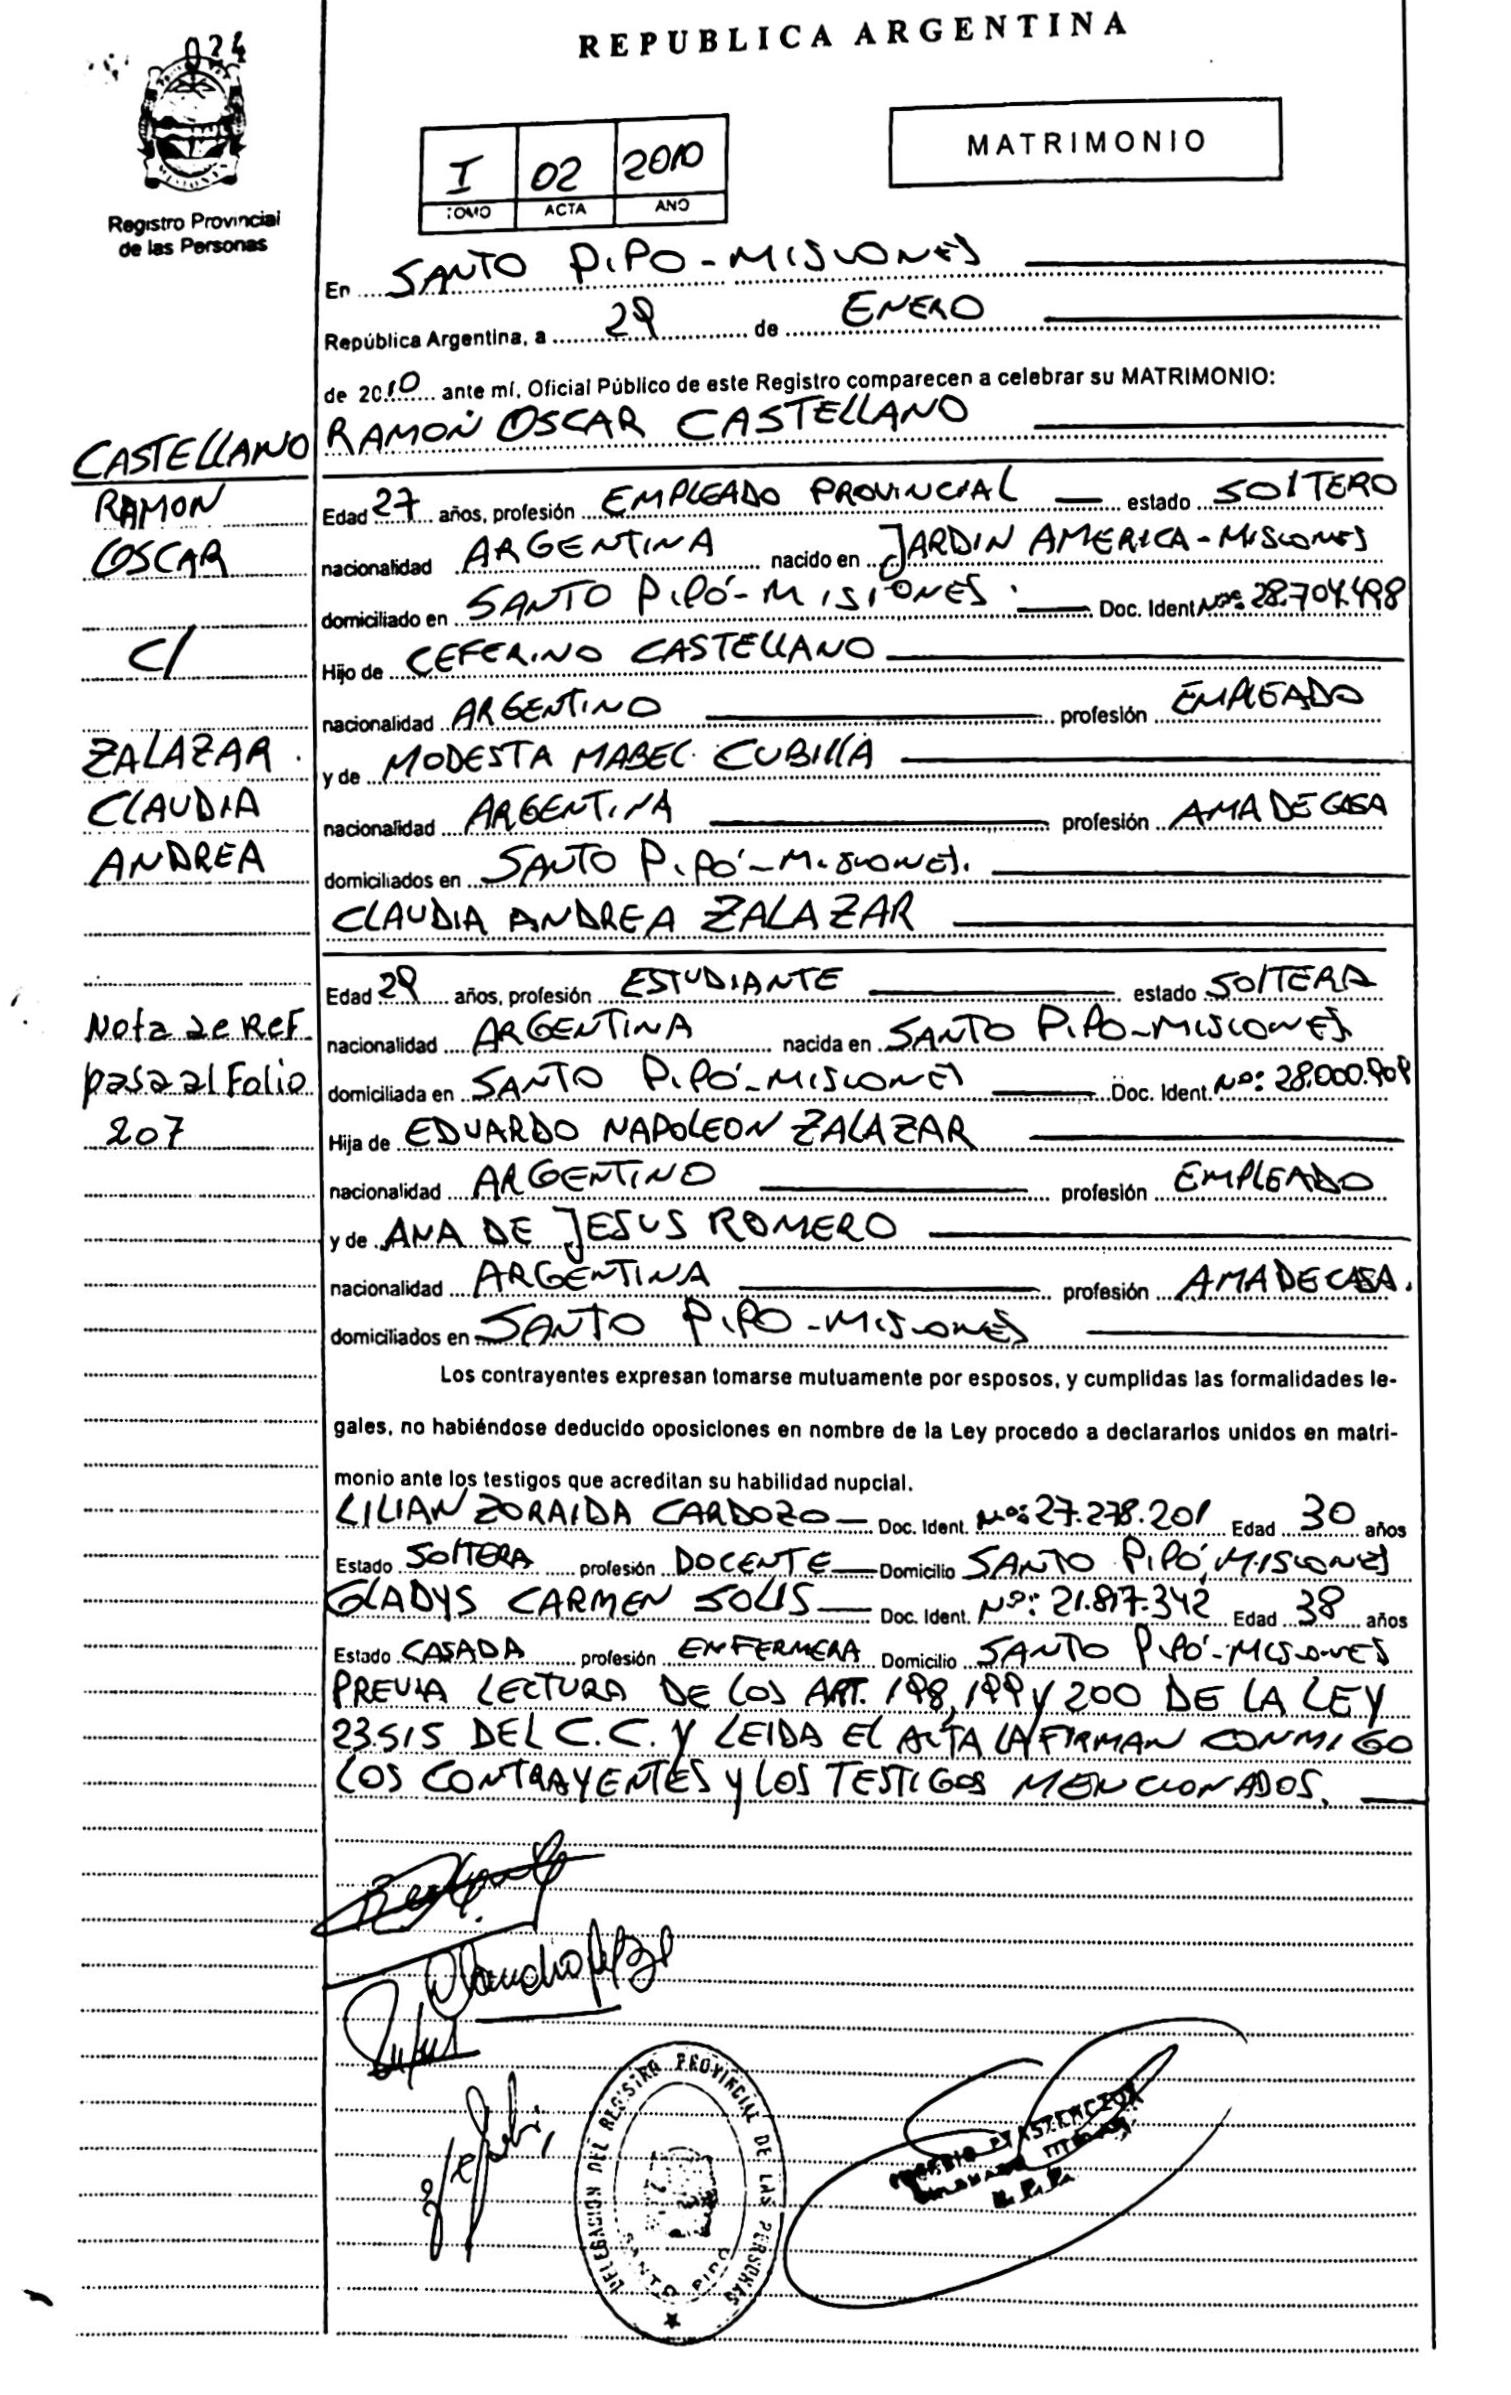 024
REPUBLICA ARGENTINA
MATRIMONIO
I 02 2010
TOMO ACTA AÑO
Registro Provincial
de las Personas
En SANTO PIPO-MISIONES
República Argentina, a 29 de ENERO
de 2010 ante mí, Oficial Público de este Registro comparecen a celebrar su MATRIMONIO:
RAMON OSCAR CASTELLANO
Edad 27 años, profesión EMPLEADO PROVINCIAL estado SOLTERO
nacionalidad ARGENTINA nacido en JARDIN AMERICA-MISIONES
domiciliado en SANTO PIPÓ-MISIONES. Doc. Ident. Nº: 28.704.498
Hijo de CEFERINO CASTELLANO
nacionalidad ARGENTINO profesión EMPLEADO
y de MODESTA MABEL CUBILLA
nacionalidad ARGENTINA profesión AMA DE CASA
domiciliados en SANTO PIPÓ-MISIONES.
CLAUDIA ANDREA ZALAZAR
Edad 29 años, profesión ESTUDIANTE estado SOLTERA
nacionalidad ARGENTINA nacida en SANTO PIPO-MISIONES
domiciliada en SANTO PIPÓ-MISIONES Doc. Ident. Nº:
Hija de EDUARDO NAPOLEON ZALAZAR
nacionalidad ARGENTINO profesión EMPLEADO
y de ANA DE JESUS ROMERO
nacionalidad ARGENTINA profesión AMA DE CASA.
domiciliados en SANTO PIPO-MISIONES
Los contrayentes expresan tomarse mutuamente por esposos, y cumplidas las formalidades le-
gales, no habiéndose deducido oposiciones en nombre de la Ley procedo a declararlos unidos en matri-
monio ante los testigos que acreditan su habilidad nupcial.
LILIAN ZORAIDA CARDOZO Doc. Ident. Nº: 27.278.201 Edad 30 años
Estado SOLTERA profesión DOCENTE Domicilio SANTO PIPÓ, MISIONES
GLADYS CARMEN SOLIS Doc. Ident. Nº: 21.817.342 Edad 38 años
Estado CASADA profesión ENFERMERA Domicilio SANTO PIPÓ-MISIONES
PREVIA LECTURA DE LOS ART. 198, 199 Y 200 DE LA LEY
23.515 DEL C.C. Y LEIDA EL ACTA LA FIRMAN CONMIGO
LOS CONTRAYENTES Y LOS TESTIGOS MENCIONADOS.
CASTELLANO
RAMON
OSCAR
C/
ZALAZAR.
CLAUDIA
ANDREA
Nota de Ref.
pasa al Folio
207
DELEGACION DEL REGISTRO PROVINCIAL DE LAS PERSONAS
SANTO PIPO